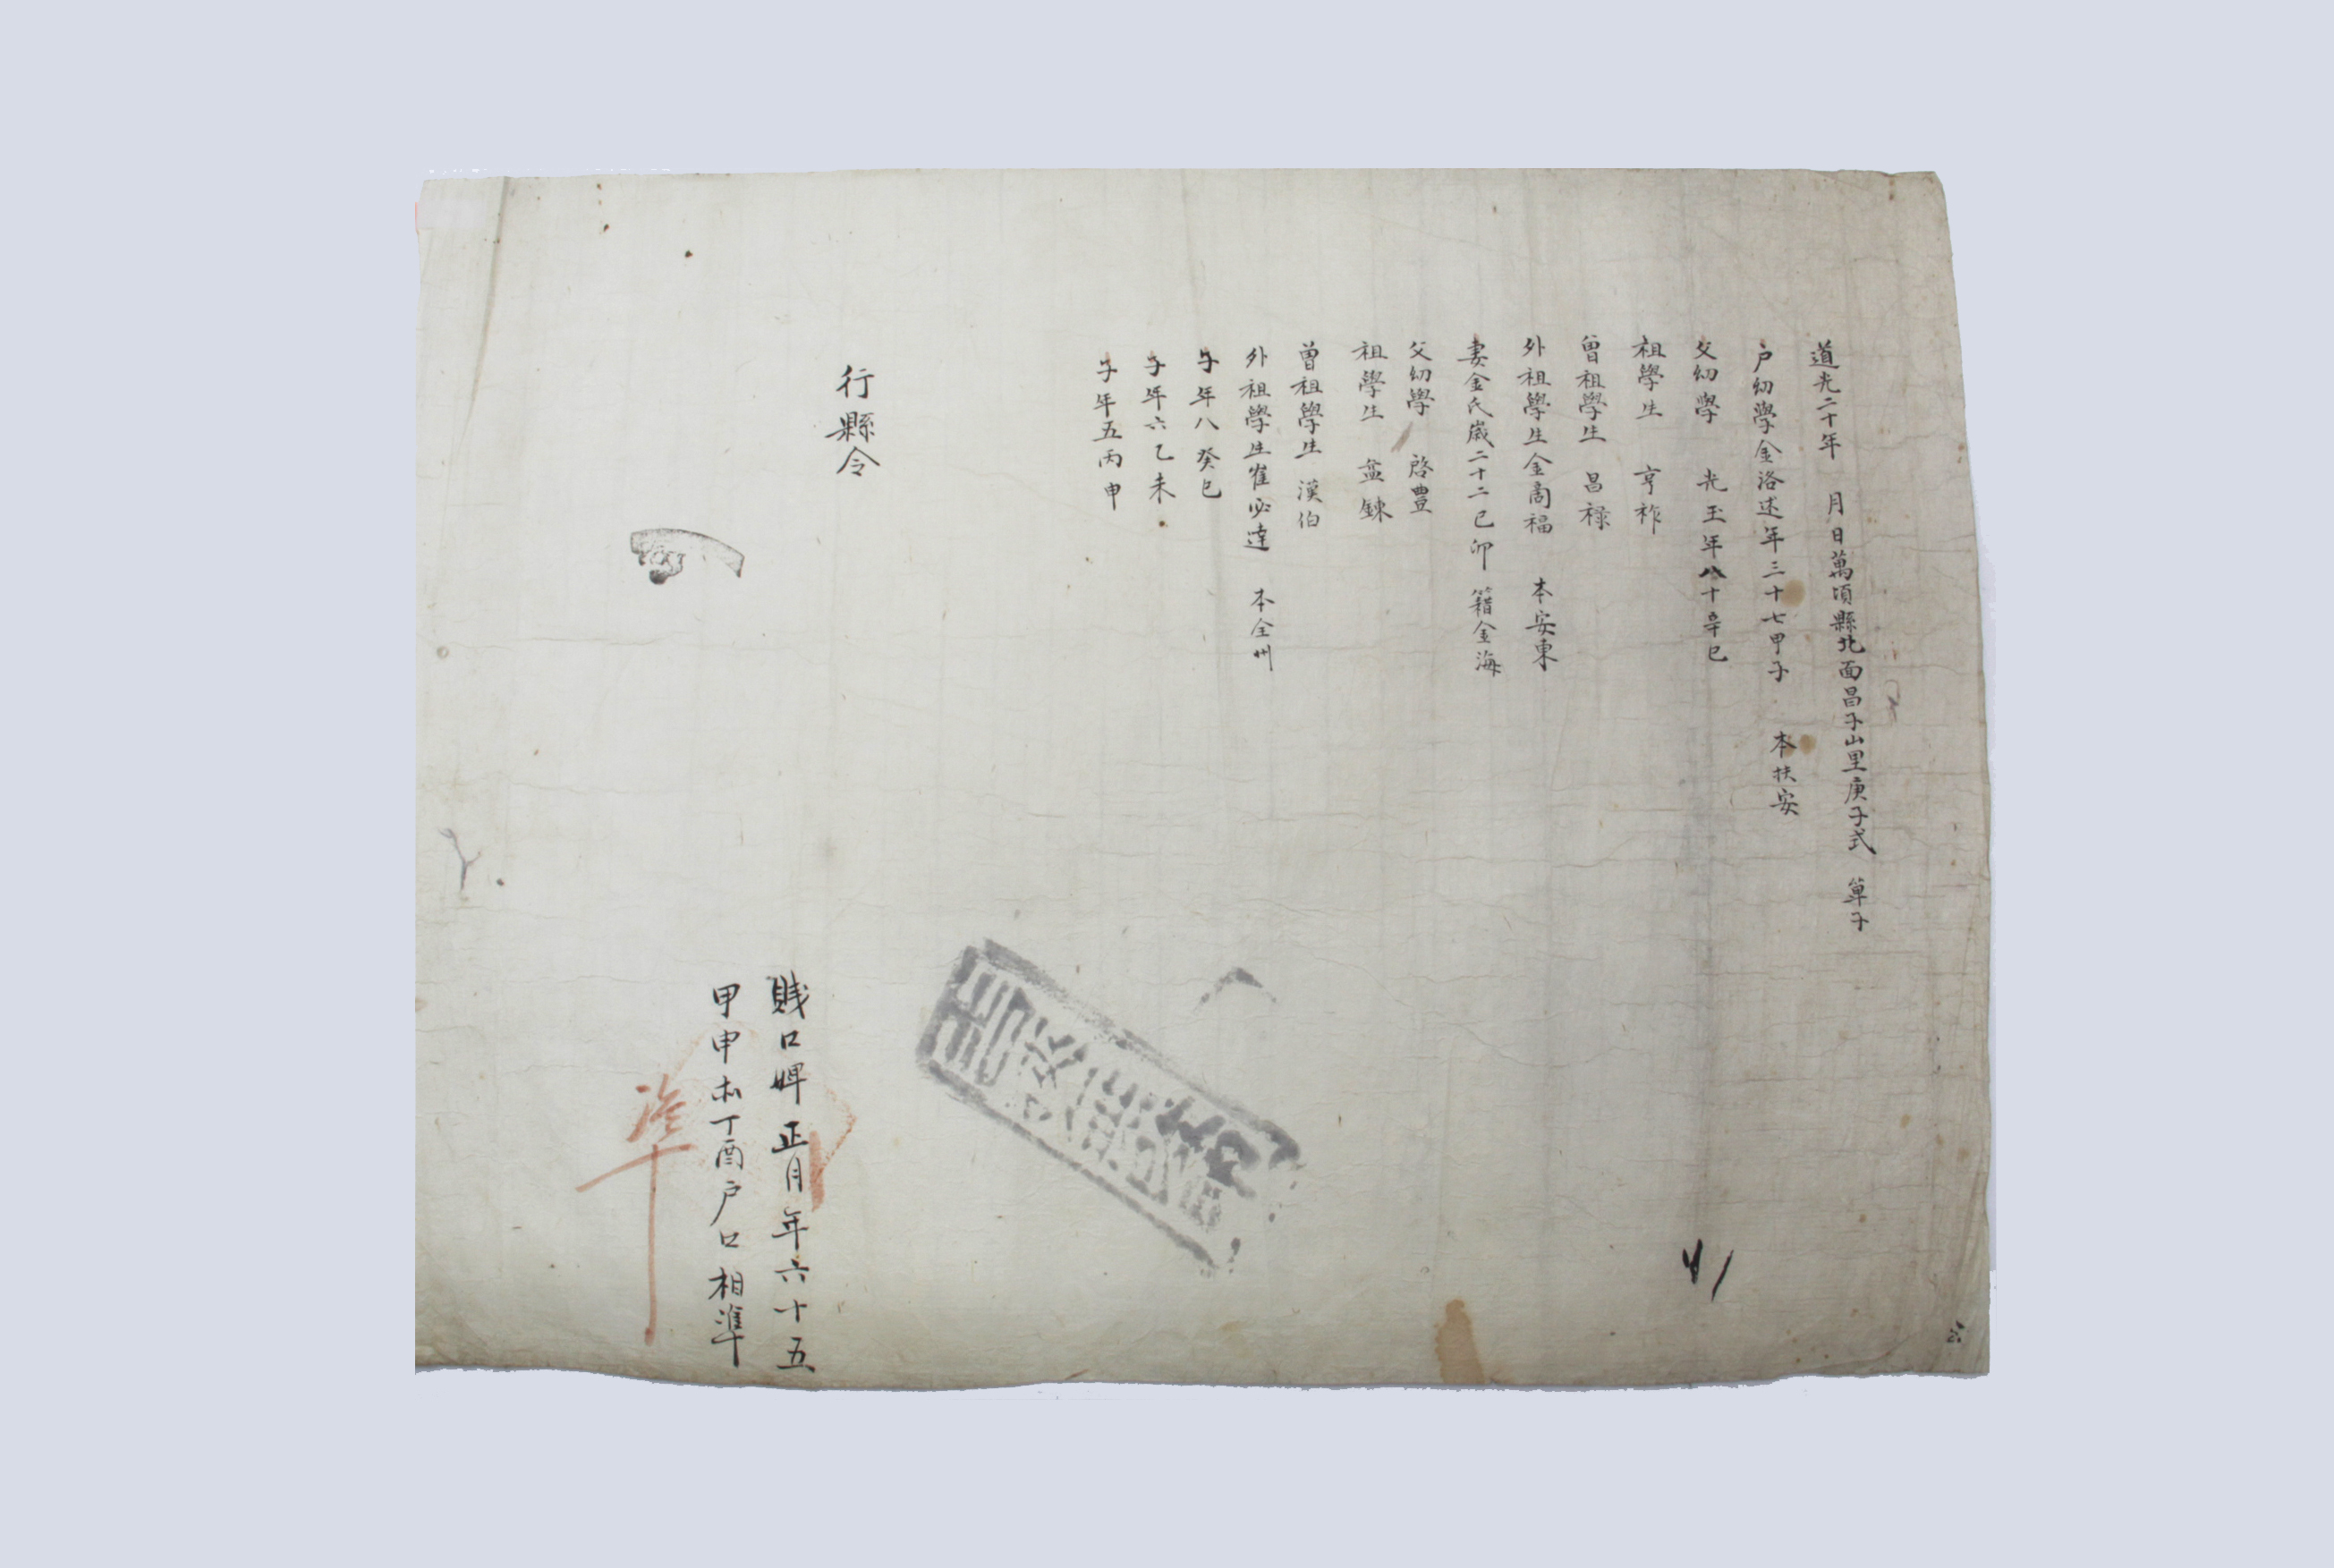 道光二十年 月 日萬頃縣北面昌子山里庚子式 單子
户幼學金洛述年三十七甲子 本扶安
父幼學 光玉年八十辛巳
祖學生 亨祚
曾祖學生 昌祿
外祖學生金商福 本安東
妻金氏歲二十二己卯 籍金海
父幼學 啓豊
祖學生 益鍊
曾祖學生 漢伯
外祖學生崔必達 本全州
子年八癸巳
子年六乙未
子年五丙申
行縣令
賤口婢 正月年六十五
甲申 丁酉户口相準
準